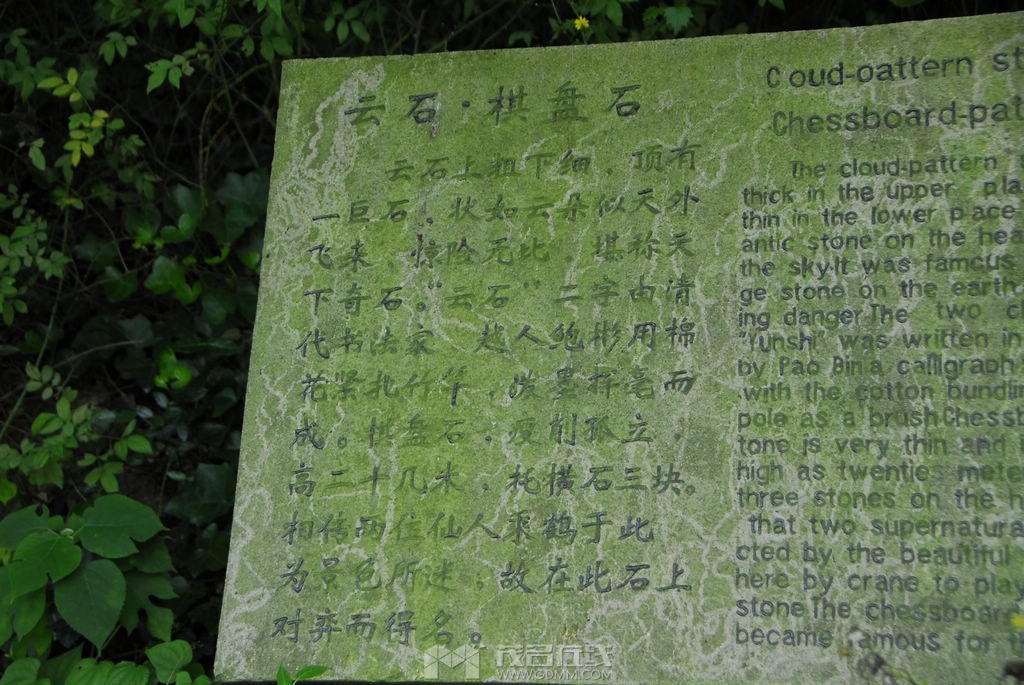 云石·棋盘石
云石上粗下细，顶有
一巨石，状如云朵似天外
飞来，惊险无比，堪称天
下奇石。“云石”二字由清
代书法家 越人鲍彬用棉
花紧扎竹竿，泼墨挥毫而
成。棋盘石，瘦削孤立，
高二十几米，托横石三块。
相传两位仙人乘鹤于此
为景色所迷，故在此石上
对弈而得名。
Coud-oattern st
Chessboard-pat
The cloud-pattern
thick in the upper pla
thin in the lower place
antic stone on the hea
the sky.It was famcus
ge stone on the earth
ing danger.The two ch
"Yunshi" was written in
by Pao Bin a calligraph
with the cotton bundlin
pole as a brush.Chessb
tone is very thin and
high as twenties mete
three stones on the h
that two supernatura
cted by the beautiful
here by crane to play
stone.The chessboar
became famous for t
茂名在线
WWW.GDMM.COM